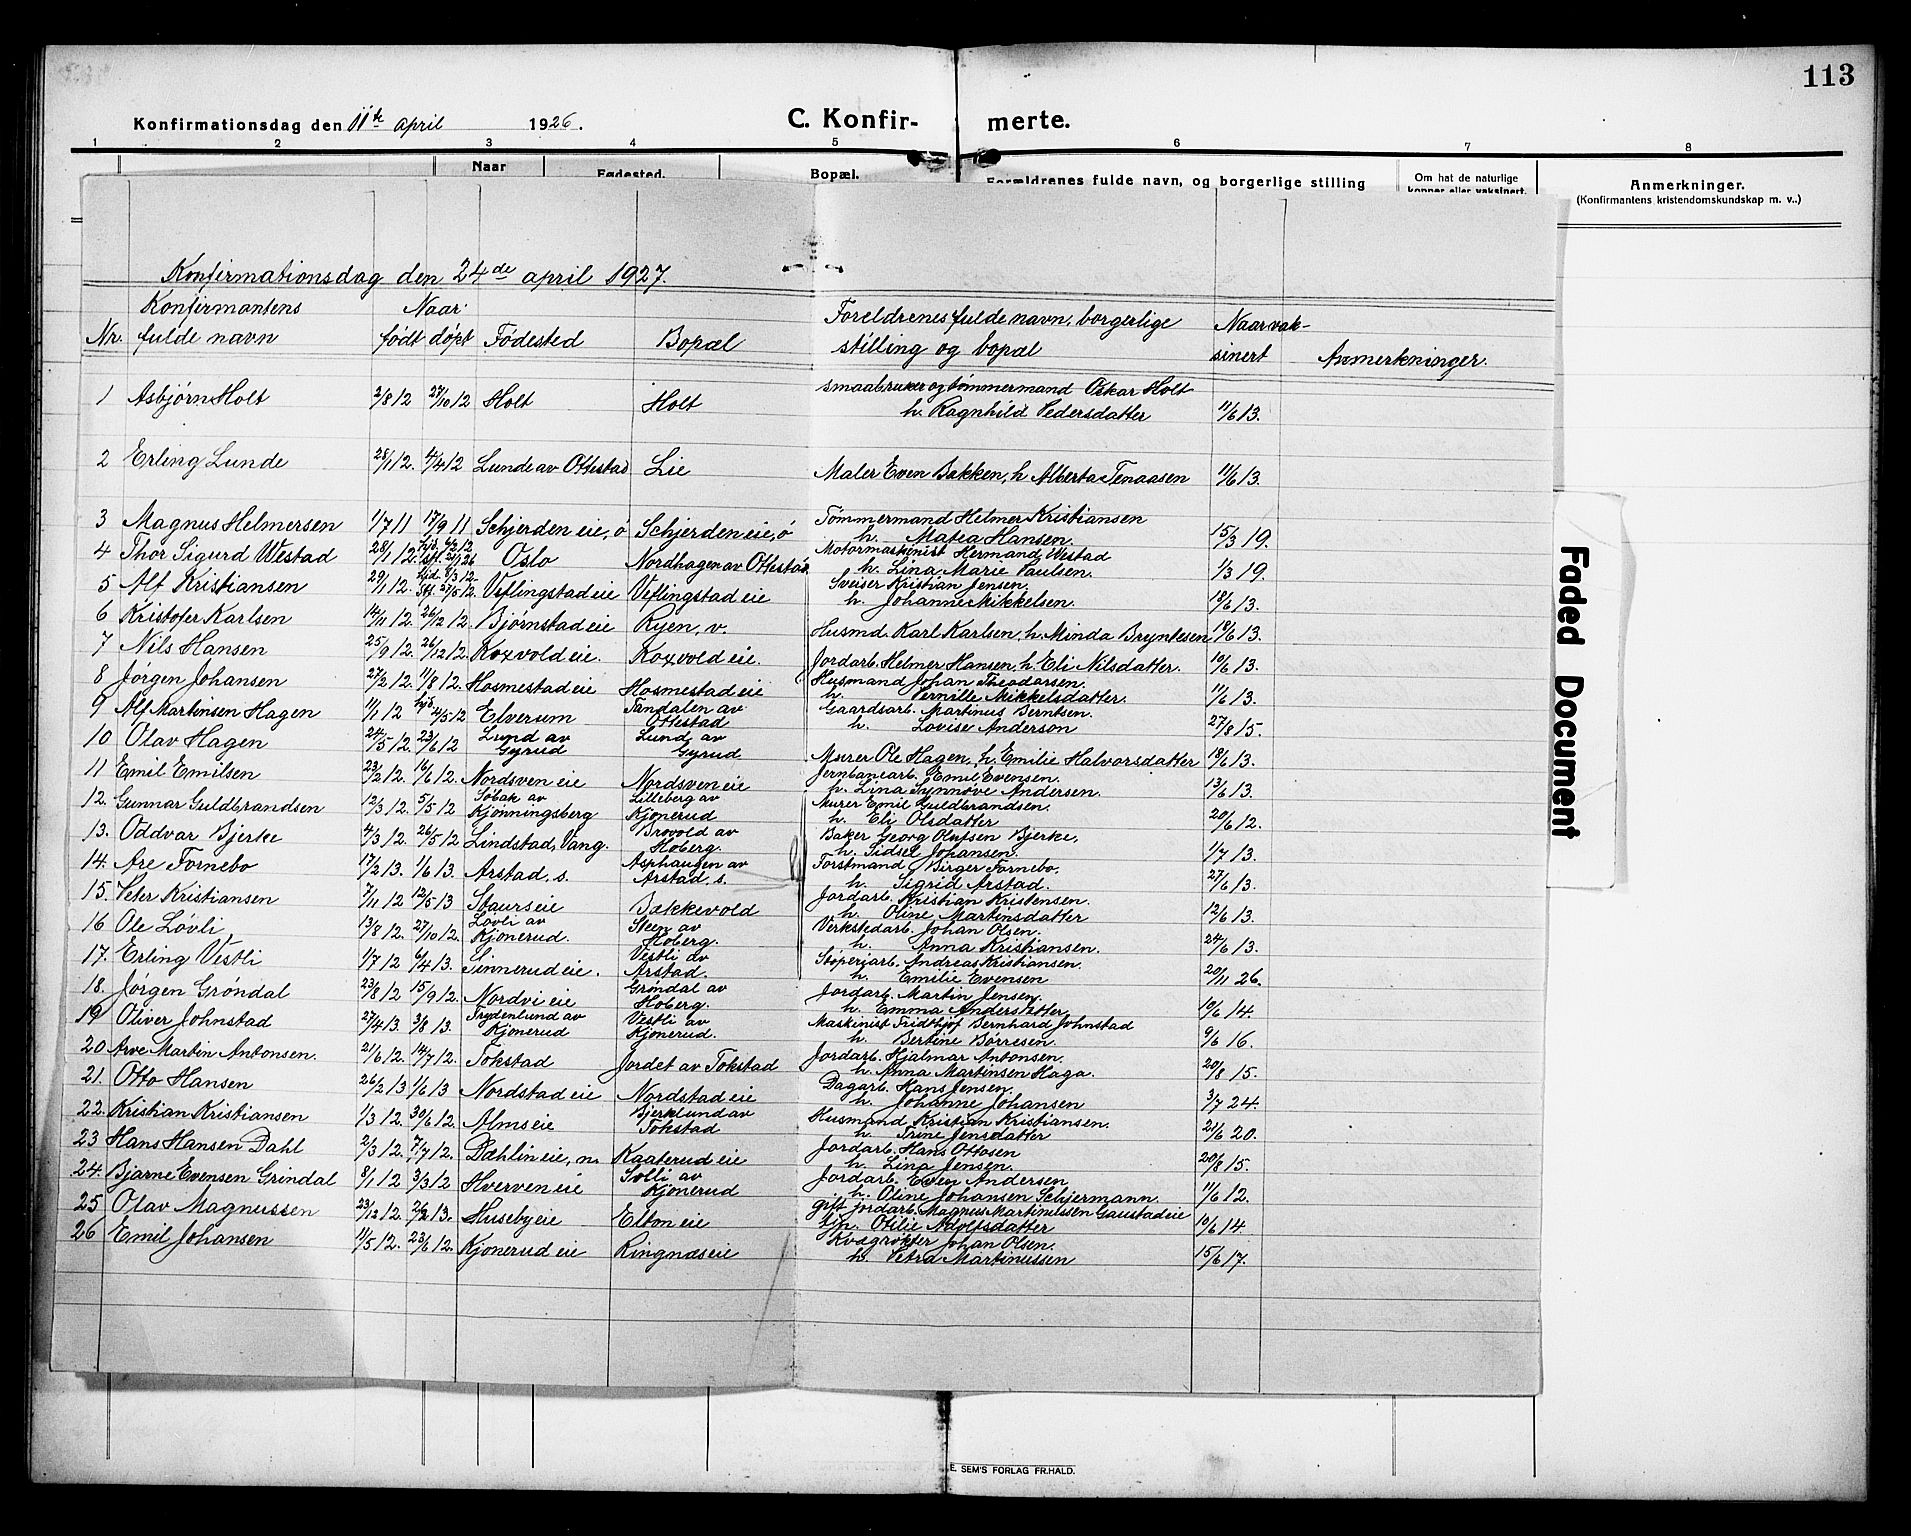 113
Konfirmationsdag den 11te april 1926.
C. Konfir- merte.
1 2 3 4 5 6 7 8
Naar
Fødested.
Bopæl.
Forældrenes fulde navn, og borgerlige stilling
Om hat de naturlige
kopper eller vaksinert.
Anmerkninger.
(Konfirmantens kristendomskundskap m. v..)
Konfirmationsdag den 24de april 1927.
Konfirmantens Naar: Foreldrenes fulde navn, borgerlige Naar vak-
Nr. fulde navn født døpt Fødested Bopæl stilling og bopæl sinert Anmerkninger.
1 Asbjørn Holt 2/8 12 27/10 12 Holt Holt smaabruker og tømmermand Oskar Holt
h. Ragnhild Pedersdatter 11/6 13.
2 Erling Lunde 28/1 12. 4/4 12 Lunde av Ottestad Lie Maler Even Bakken, h Alberta Tenaasen 11/6 13.
3 Magnus Helmersen 1/7 11 17/9 11 Schjerden eie, ø Schjerden eie, ø Tømmermand Helmer Kristiansen
h. Matea Hansen. 15/3 19.
4 Thor Sigurd Westad 28/1 12. hjd. 6/2 12 stf. 21/1 26 Oslo Nordhagen av Ottestad Motormaskinist Hermand Westad
h. Lina Marie Paulsen. 1/3 19.
5 Alf Kristiansen 29/1 12. hjd. 8/3 12. Stf. 27/5 12. Veflingstad eie Veflingstad eie Sveiser Kristian Jensen.
h. Johanne Mikkelsen. 18/6 13.
6 Kristofer Karlsen 14/11 12. 26/12 12. Bjørnstad eie Ryen, v. Husmd. Karl Karlsen, h. Minda Bryntesen 18/6 13.
7 Nils Hansen 25/9 12. 26/12 12. Koxvold eie. Koxvold eie. Jordarb. Helmer Hansen, h. Eli Nilsdatter. 10/6 13.
8 Jørgen Johansen 27/2 12. 11/8 12. Hosmestad eie Hosmestad eie Husmand Johan Theodorsen.
h. Pernille Mikkelsdatter. 11/6 13.
9 Alf Martinsen Hagen 11/1 12 hjd. 4/5 12 Elverum Tandalen av Ottestad Gaardsarb. Martinus Berntsen.
h. Lovise Anderson 27/8 15.
10 Olav Hagen 24/5 12. 23/6 12 Lund av Gyrud Lund av Gyrud Murer Ole Hagen, h. Emilie Halvorsdatter 18/6 13.
11 Emil Emilsen 23/2 12. 16/6 12. Nordsven eie Nordsven eie Jernbanearb. Emil Evensen.
h. Lina Synnøve Andersen. 13/6 13.
12. Gunnar Guldbrandsen 12/3 12. 5/5 12 Søbak av Kjønningsberg Lilleberg av Kjønerud Murer Emil Guldbrandsen.
h. Eli Olsdatter 20/6 12.
13. Oddvar Bjerke 4/3 12. 26/5 12 Lindstad, Vang. Brovold av Hoberg. Baker Georg Olufsen Bjerke,
h. Sidsel Johansen. 1/7 13.
14. Are Fornebo 17/2 13. 1/6 13. Arstad, s. Asphaugen av Arstad, s. Forstmand Birger Fornebo,
h. Sigrid Arstad. 27/6 13.
15. Peter Kristiansen 7/11 12 12/5 13 Staurs eie Bakkevold Jordarb. Kristian Kristensen.
h. Oline Martinsdatter 12/6 13.
16 Ole Løvli 13/8 12. 27/10 12. Løvli av Kjønerud. Steen av Hoberg. Verkstedarb. Johan Olsen.
h. Anna Kristiansen. 24/6 13.
17. Erling Vestli 1/7 12 6/4 13. Sinnerud eie. Vestli av Arstad. Støperiarb. Andreas Kristiansen.
h. Emilie Evensen 20/11 26.
18. Jørgen Grøndal 23/8 12 15/9 12. Nordvi eie Grøndal av Hoberg. Jordarb. Martin Jensen.
h. Emma Andersdatter 10/6 14.
19 Oliver Johnstad 27/4 13. 3/8 13. Frydenlund av Kjønerud Vestli av Kjønerud. Maskinist Fridthjof Bernhard Johnstad
h. Bertine Børresen 9/6 16.
20 Arve Martin Antonsen. 21/6 12. 14/7 12. Tokstad Jordet av Tokstad Jordarb. Hjalmar Antonsen.
h. Anna Martinsen Haga. 20/8 15.
21. Otto Hansen 26/2 13 1/6 13 Nordstad eie Nordstad eie Dagarb. Hans Jensen
h. Johanne Johansen 3/7 24.
22. Kristian Kristiansen 1/3 12. 30/6 12. Alms eie Bjerklund av Tokstad Husmand Kristian Kristiansen.
h. Trine Jensdatter 21/6 20.
23 Hans Hansen Dahl 2/3 12. 7/7 12. Dæhlin eie, n. Kaaterud eie Jordarb. Hans Ottosen
h. Lina Jensen. 20/8 15.
24. Bjarne Evensen Grindal 8/1 12 3/3 12 Hverven eie Solli av Kjønerud Jordarb. Even Andersen
h. Oline Johansen Schjermann. 11/6 12.
25 Olav Magnussen 23/12 12. 2/2 13. Huseby eie Elton eie gift jordarb. Magnus Martinussen Gaustad eie
Otilie Adolfsdatter 10/6 14.
26 Emil Johansen 11/5 12. 23/6 12. Kjønerud eie Ringnæs eie Kvægrøkter Johan Olsen.
h. Petra Martinussen 15/6 17.
Faded Document
E. SEM'S FORLAG FR.HALD.